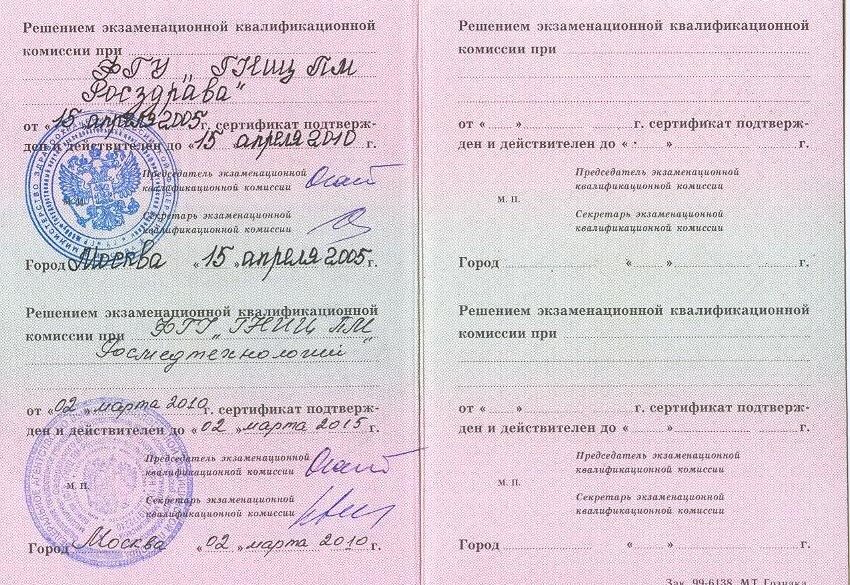 Решением экзаменационной квалификационной
комиссии при
ФГУ „ГНИЦ ПМ
Росздрава"
от «15 апреля 2005 г. сертификат подтверж-
ден и действителен до «15 апреля 2010 г.
Председатель экзаменационной
квалификационной комиссии
М. П.
Секретарь экзаменационной
квалификационной комиссии
Город Москва «15» апреля 2005 г.
Решением экзаменационной квалификационной
комиссии при ФГУ „ГНИЦ ПМ
Росмедтехнологий"
от «02» марта 2010 г. сертификат подтверж-
ден и действителен до «02» марта 2015 г.
Председатель экзаменационной
квалификационной комиссии
М. П.
Секретарь экзаменационной
квалификационной комиссии
Город Москва «02» марта 2010 г.
Решением экзаменационной квалификационной
комиссии при
от « » г. сертификат подтверж-
ден и действителен до « » г.
Председатель экзаменационной
квалификационной комиссии
М. П.
Секретарь экзаменационной
квалификационной комиссии
Город « » г.
Решением экзаменационной квалификационной
комиссии при
от « » г. сертификат подтверж-
ден и действителен до « » г.
Председатель экзаменационной
квалификационной комиссии
М. П.
Секретарь экзаменационной
квалификационной комиссии
Город « » г.
Зак. 99-6138. МТ Гознака